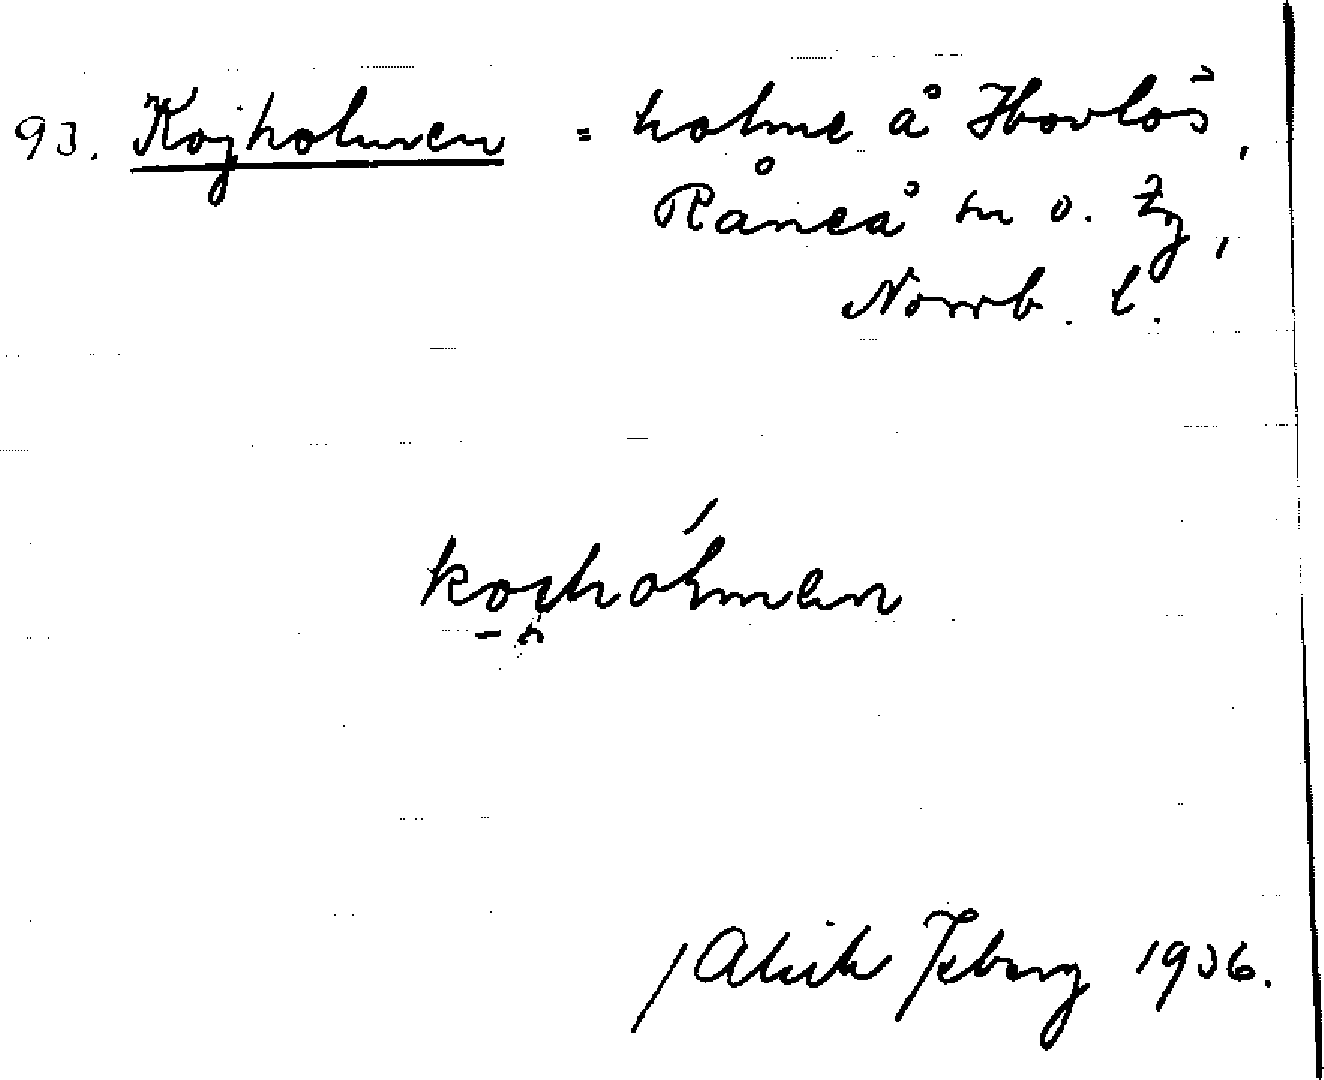 93. Kojholmen = holme å Hovlös,
Råneå sn o. tg,
Norrb. l.
kojhólmen
/ Alrik Isberg 1936.